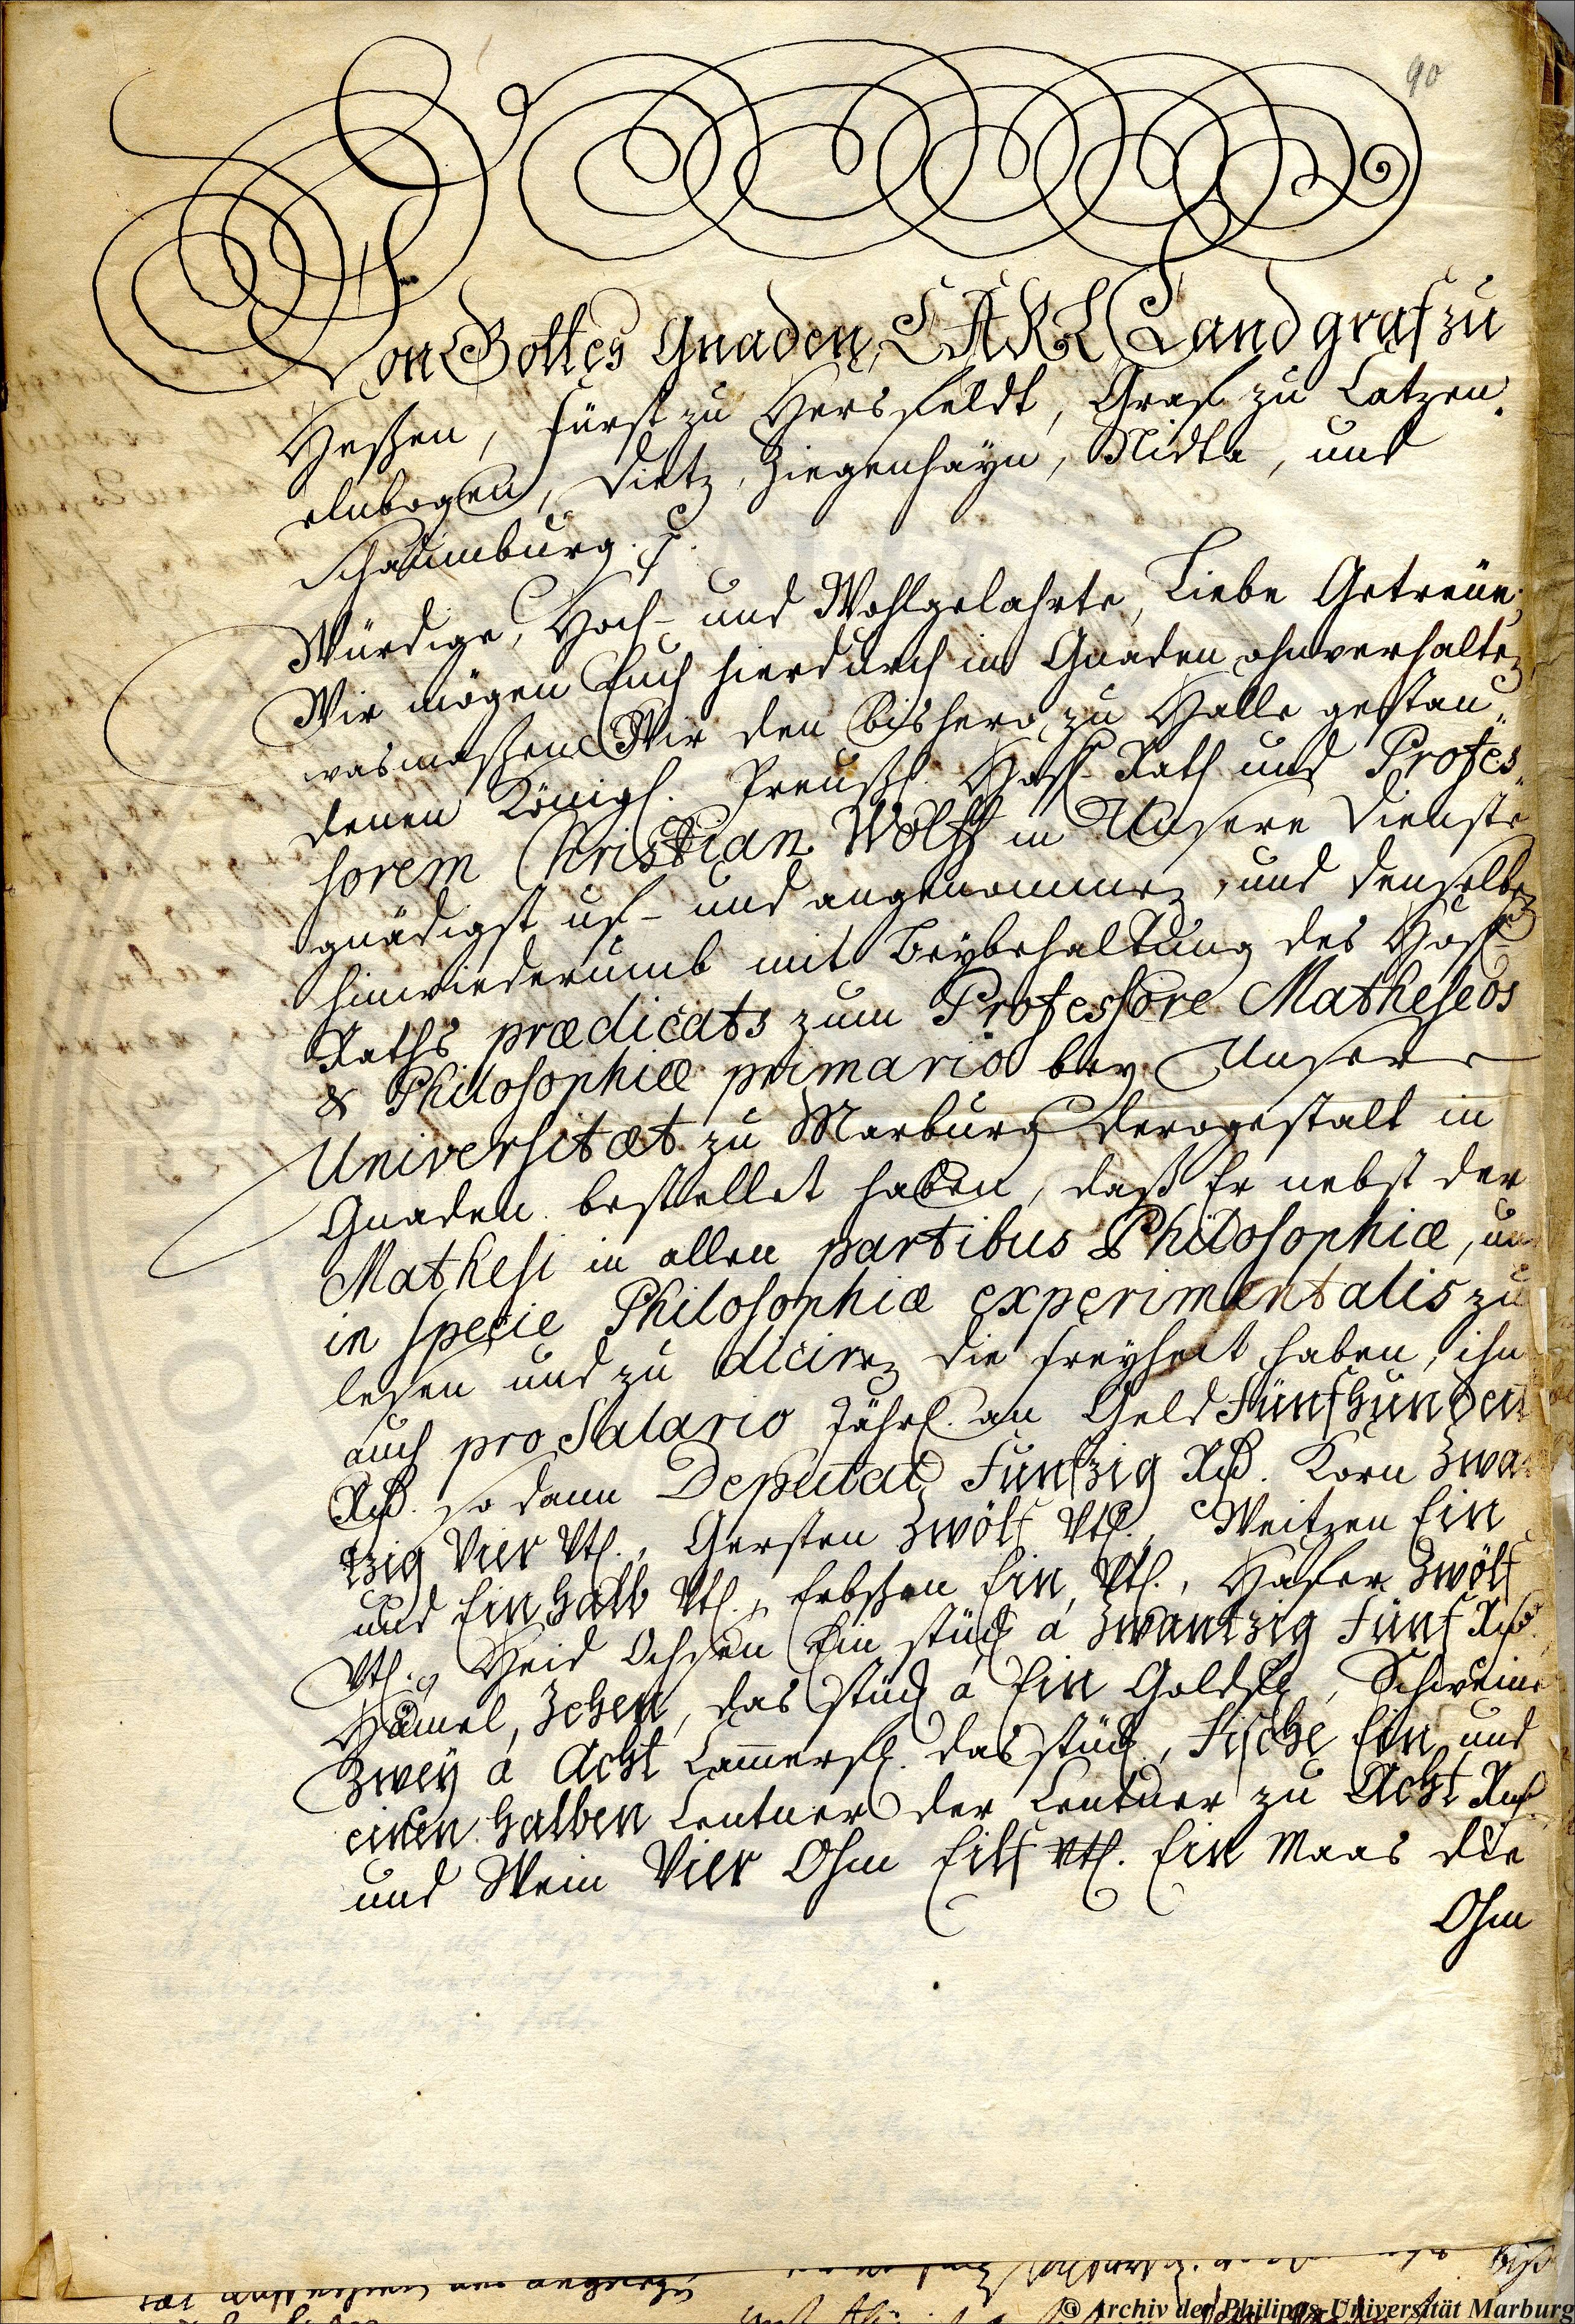 90
Von Gottes Gnaden, CARL Landgraf zu
Heßen, Fürst zu Hersfeldt, Graf zu Catzen-
elnbogen, Dietz, Ziegenhayn, Nidta, und
Schaumburg. p.
Würdige, Hoch- und Wohlgelahrte, Liebe Getreüe,
Wir mögen Euch hierdurch in Gnaden ohnverhalten
wasmaßen Wir den bishero zu Halle gestan-
denen Königl. Preußl. Hoff-Rath und Profes-
sorem Christian Wolff in Unsere Dienste
gnädigst uf- und angenommen, und denselben
hinwiederumb mit Beybehaltung des Hoff-
Raths prædicats zum Professore Matheseos
& Philosophiæ primario bey Unserer
Universitæt zu Marburg derogestalt in
Gnaden bestellet haben, daß Er nebst der
Mathesi in allen partibus Philosophiæ, und
in specie Philosophiæ experimentalis zu
lesen und zu dociren die Freyheit haben, ihm
auch pro Salario Jährl. an Geld Fünfhundert
Rthl. so dann Deputat Funfzig Rthl. Korn Zwan
tzig Vier Vtl., Gersten Zwölf Vtl., Weitzen Ein
und Ein halb Vtl., Erbßen Ein Vtl., Hafer Zwölf
Vtl., Heid Ochsen Ein stück á Zwantzig Fünf Rthl.
Hämel, Zehen, das stück á Ein Goldfl., Schweine
Zwey á Acht Cammerfl. das stück, Fische Ein und
einen halben Centner der Centner zu Acht Rthl.
und Wein Vier Ohm Eilf Vtl. Ein Maas die
Ohm
© Archiv der Philipps-Universität Marburg